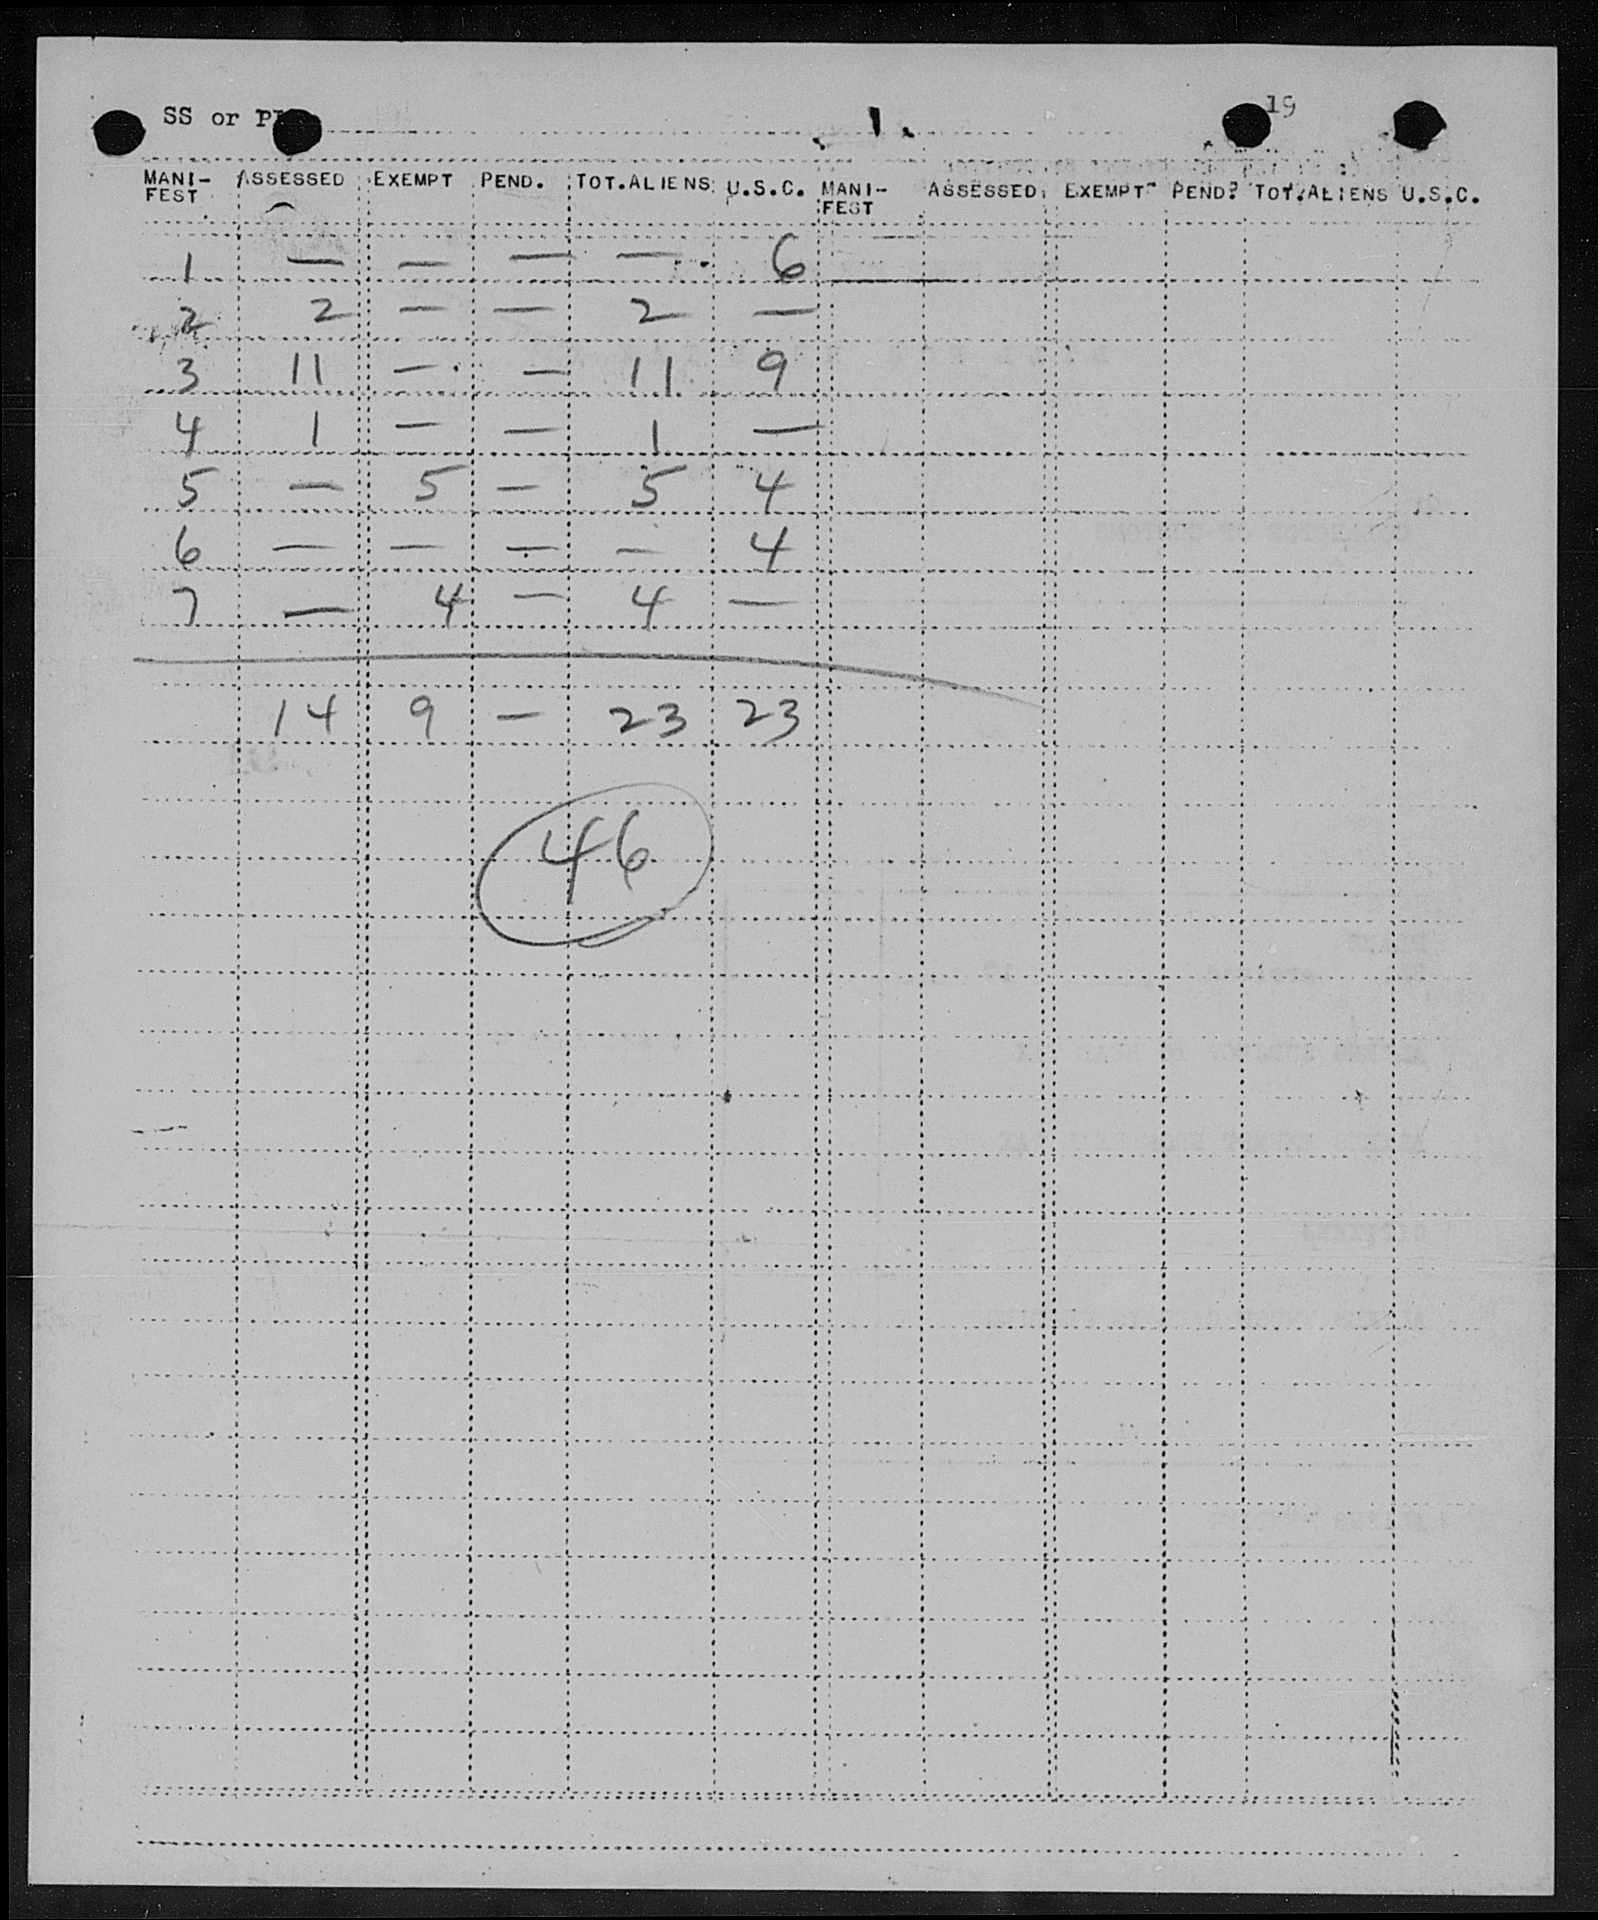 SS or 19
MANI-FEST ASSESSED EXEMPT PEND. TOT.ALIENS U.S.C. MANI-FEST ASSESSED EXEMPT PEND. TOT.ALIENS U.S.C.
1 — — — — 6
2 2 — — 2 —
3 11 — — 11 9
4 1 — — 1 —
5 — 5 — 5 4
6 — — — — 4
7 — 4 — 4 —
14 9 — 23 23
46